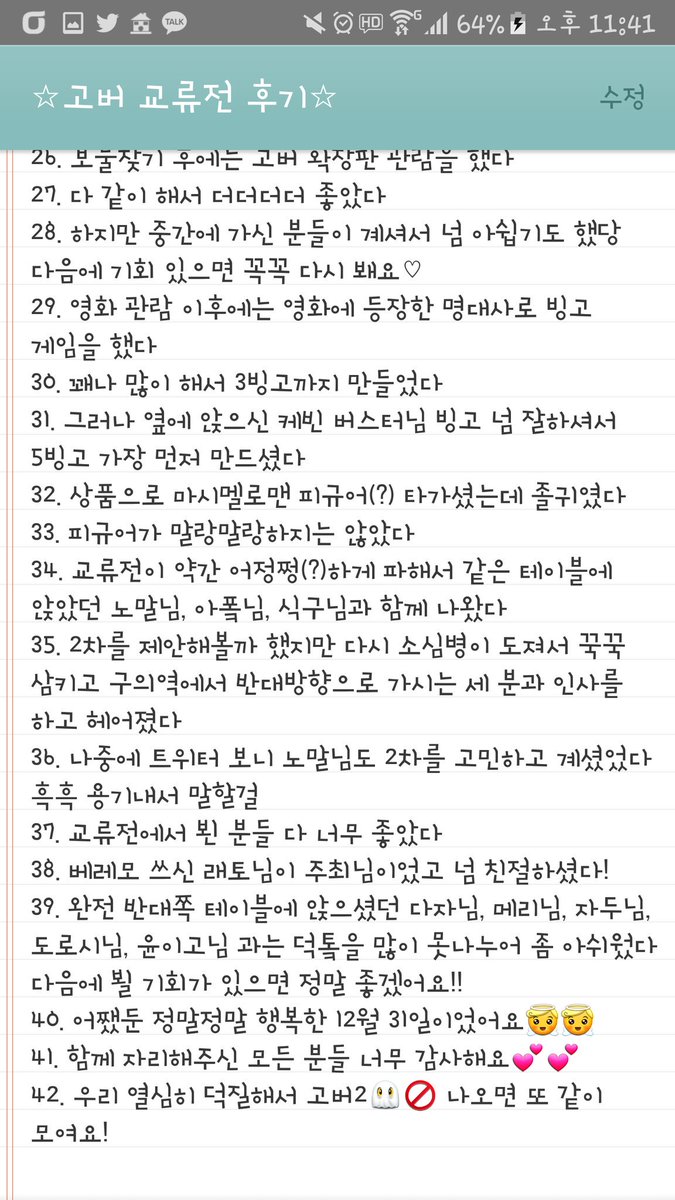 TALK HD G 64% 오후 11:41
☆고버 교류전 후기☆ 수정
26. 보물찾기 후에는 고버 확장판 관람을 했다
27. 다 같이 해서 더더더더 좋았다
28. 하지만 중간에 가신 분들이 계셔서 넘 아쉽기도 했당
다음에 기회 있으면 꼭꼭 다시 봬요♡
29. 영화 관람 이후에는 영화에 등장한 명대사로 빙고
게임을 했다
30. 꽤나 많이 해서 3빙고까지 만들었다
31. 그러나 옆에 앉으신 케빈 버스터님 빙고 넘 잘하셔서
5빙고 가장 먼저 만드셨다
32. 상품으로 마시멜로맨 피규어(?) 타가셨는데 졸귀였다
33. 피규어가 말랑말랑하지는 않았다
34. 교류전이 약간 어정쩡(?)하게 파해서 같은 테이블에
앉았던 노말님, 아폴님, 식구님과 함께 나왔다
35. 2차를 제안해볼까 했지만 다시 소심병이 도져서 꾹꾹
삼키고 구의역에서 반대방향으로 가시는 세 분과 인사를
하고 헤어졌다
36. 나중에 트위터 보니 노먈님도 2차를 고민하고 계셨었다
흑흑 용기내서 말할걸
37. 교류전에서 뵌 분들 다 너무 좋았다
38. 베레모 쓰신 래토님이 주최님이었고 넘 친절하셨다!
39. 완전 반대쪽 테이블에 앉으셨던 다자님, 메리님, 자두님,
도로시님, 윤이고님 과는 덕톸을 많이 못나누어 좀 아쉬웠다
다음에 뵐 기회가 있으면 정말 좋겠어요!!
40. 어쨌둔 정말정말 행복한 12월 31일이었어요😇😇
41. 함께 자리해주신 모든 분들 너무 감사해요💕💕
42. 우리 열심히 덕질해서 고버2👻🚫 나오면 또 같이
모여요!